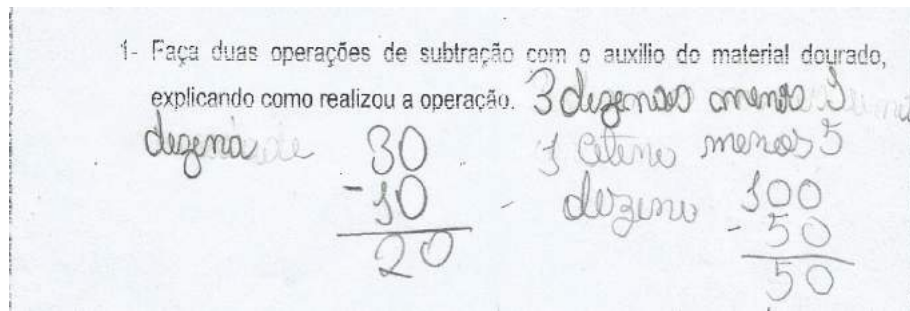 1- Faça duas operações de subtração com o auxilio do material dourado,
explicando como realizou a operação. 3 dezenas menos 1
dezena
30
- 10
20
1 centena menos 5
dezena
100
- 50
50